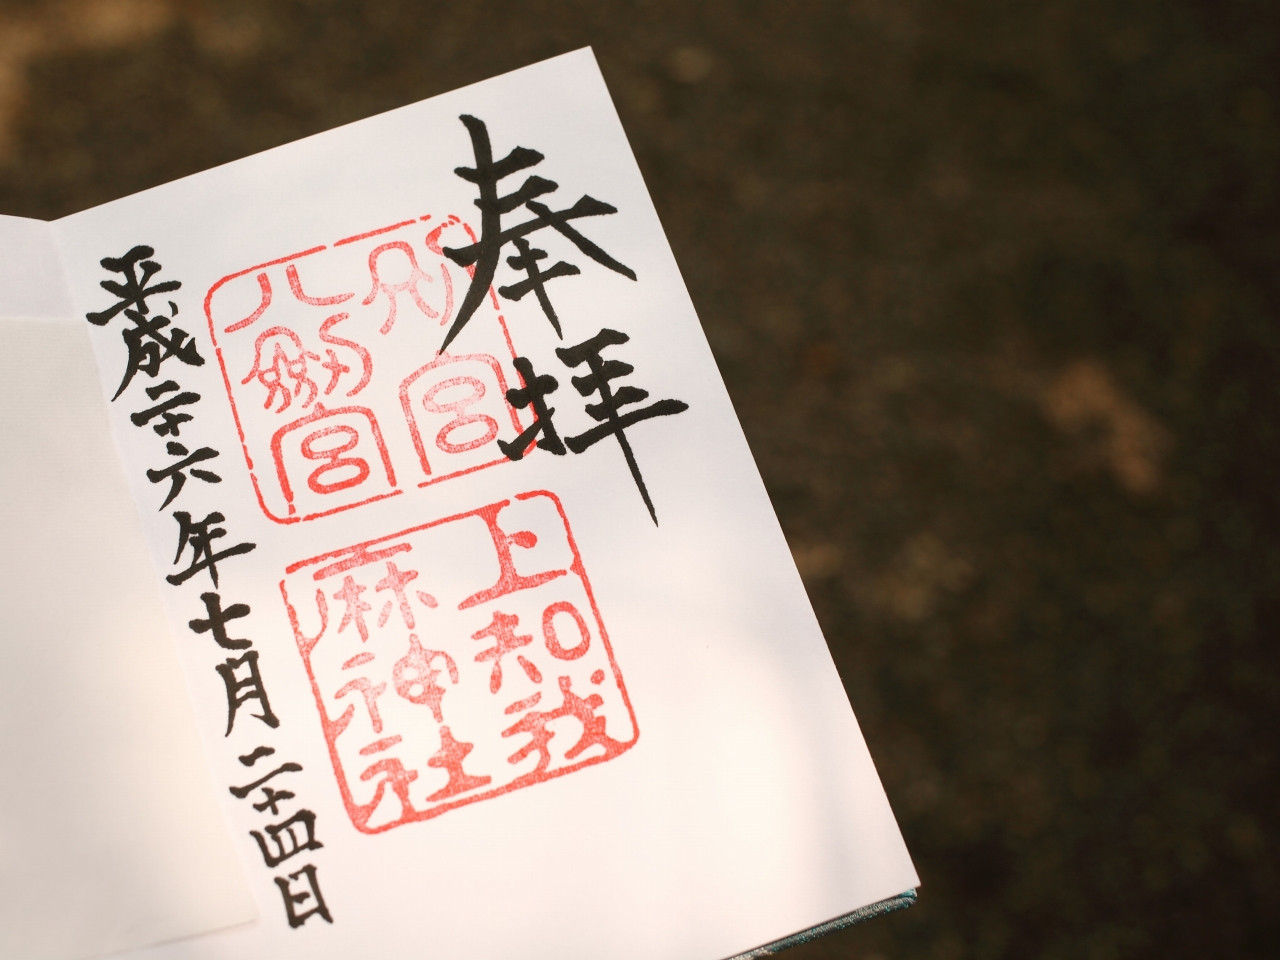 奉拝
別宮
八剣宮
上知我
麻神社
平成二十六年七月二十四日